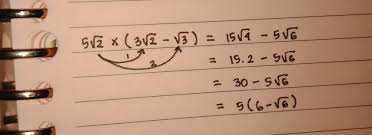 5√2 × (3√2 − √3) = 15√4 − 5√6
1
2
= 15.2 − 5√6
= 30 − 5√6
= 5(6−√6)